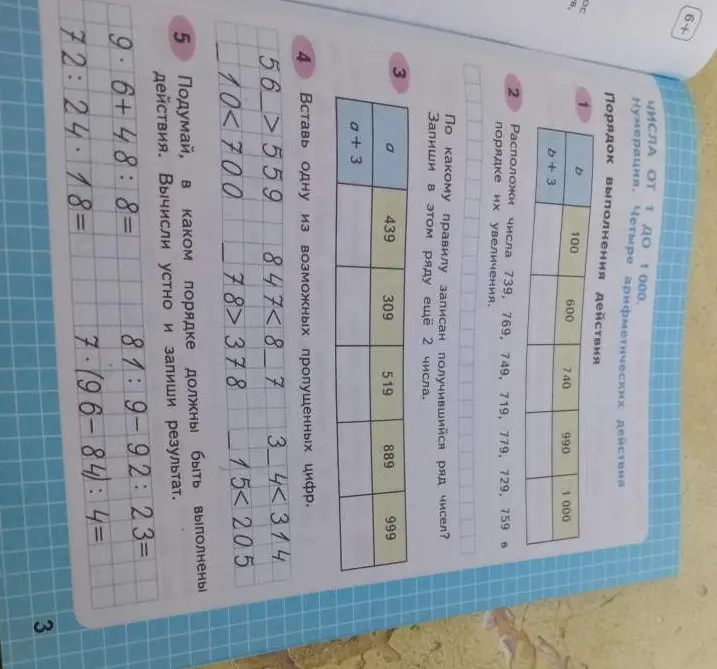 ос
6+
ЧИСЛА ОТ 1 ДО 1 000.
Нумерация. Четыре арифметических действия
Порядок выполнения действия
1
b 100 600 740 990 1 000
b + 3
2 Расположи числа 739, 769, 749, 719, 779, 729, 759 в
порядке их увеличения.
По какому правилу записан получившийся ряд чисел?
Запиши в этом ряду ещё 2 числа.
3
a 439 309 519 889 999
a + 3
4 Вставь одну из возможных пропущенных цифр.
56_>559 847<8_7 3_4<314
_10<700 _78>378 _15<205
5 Подумай, в каком порядке должны быть выполнены
действия. Вычисли устно и запиши результат.
9·6+48:8= 81:9-92:23=
72:24·18= 7·(96-84):4=
3